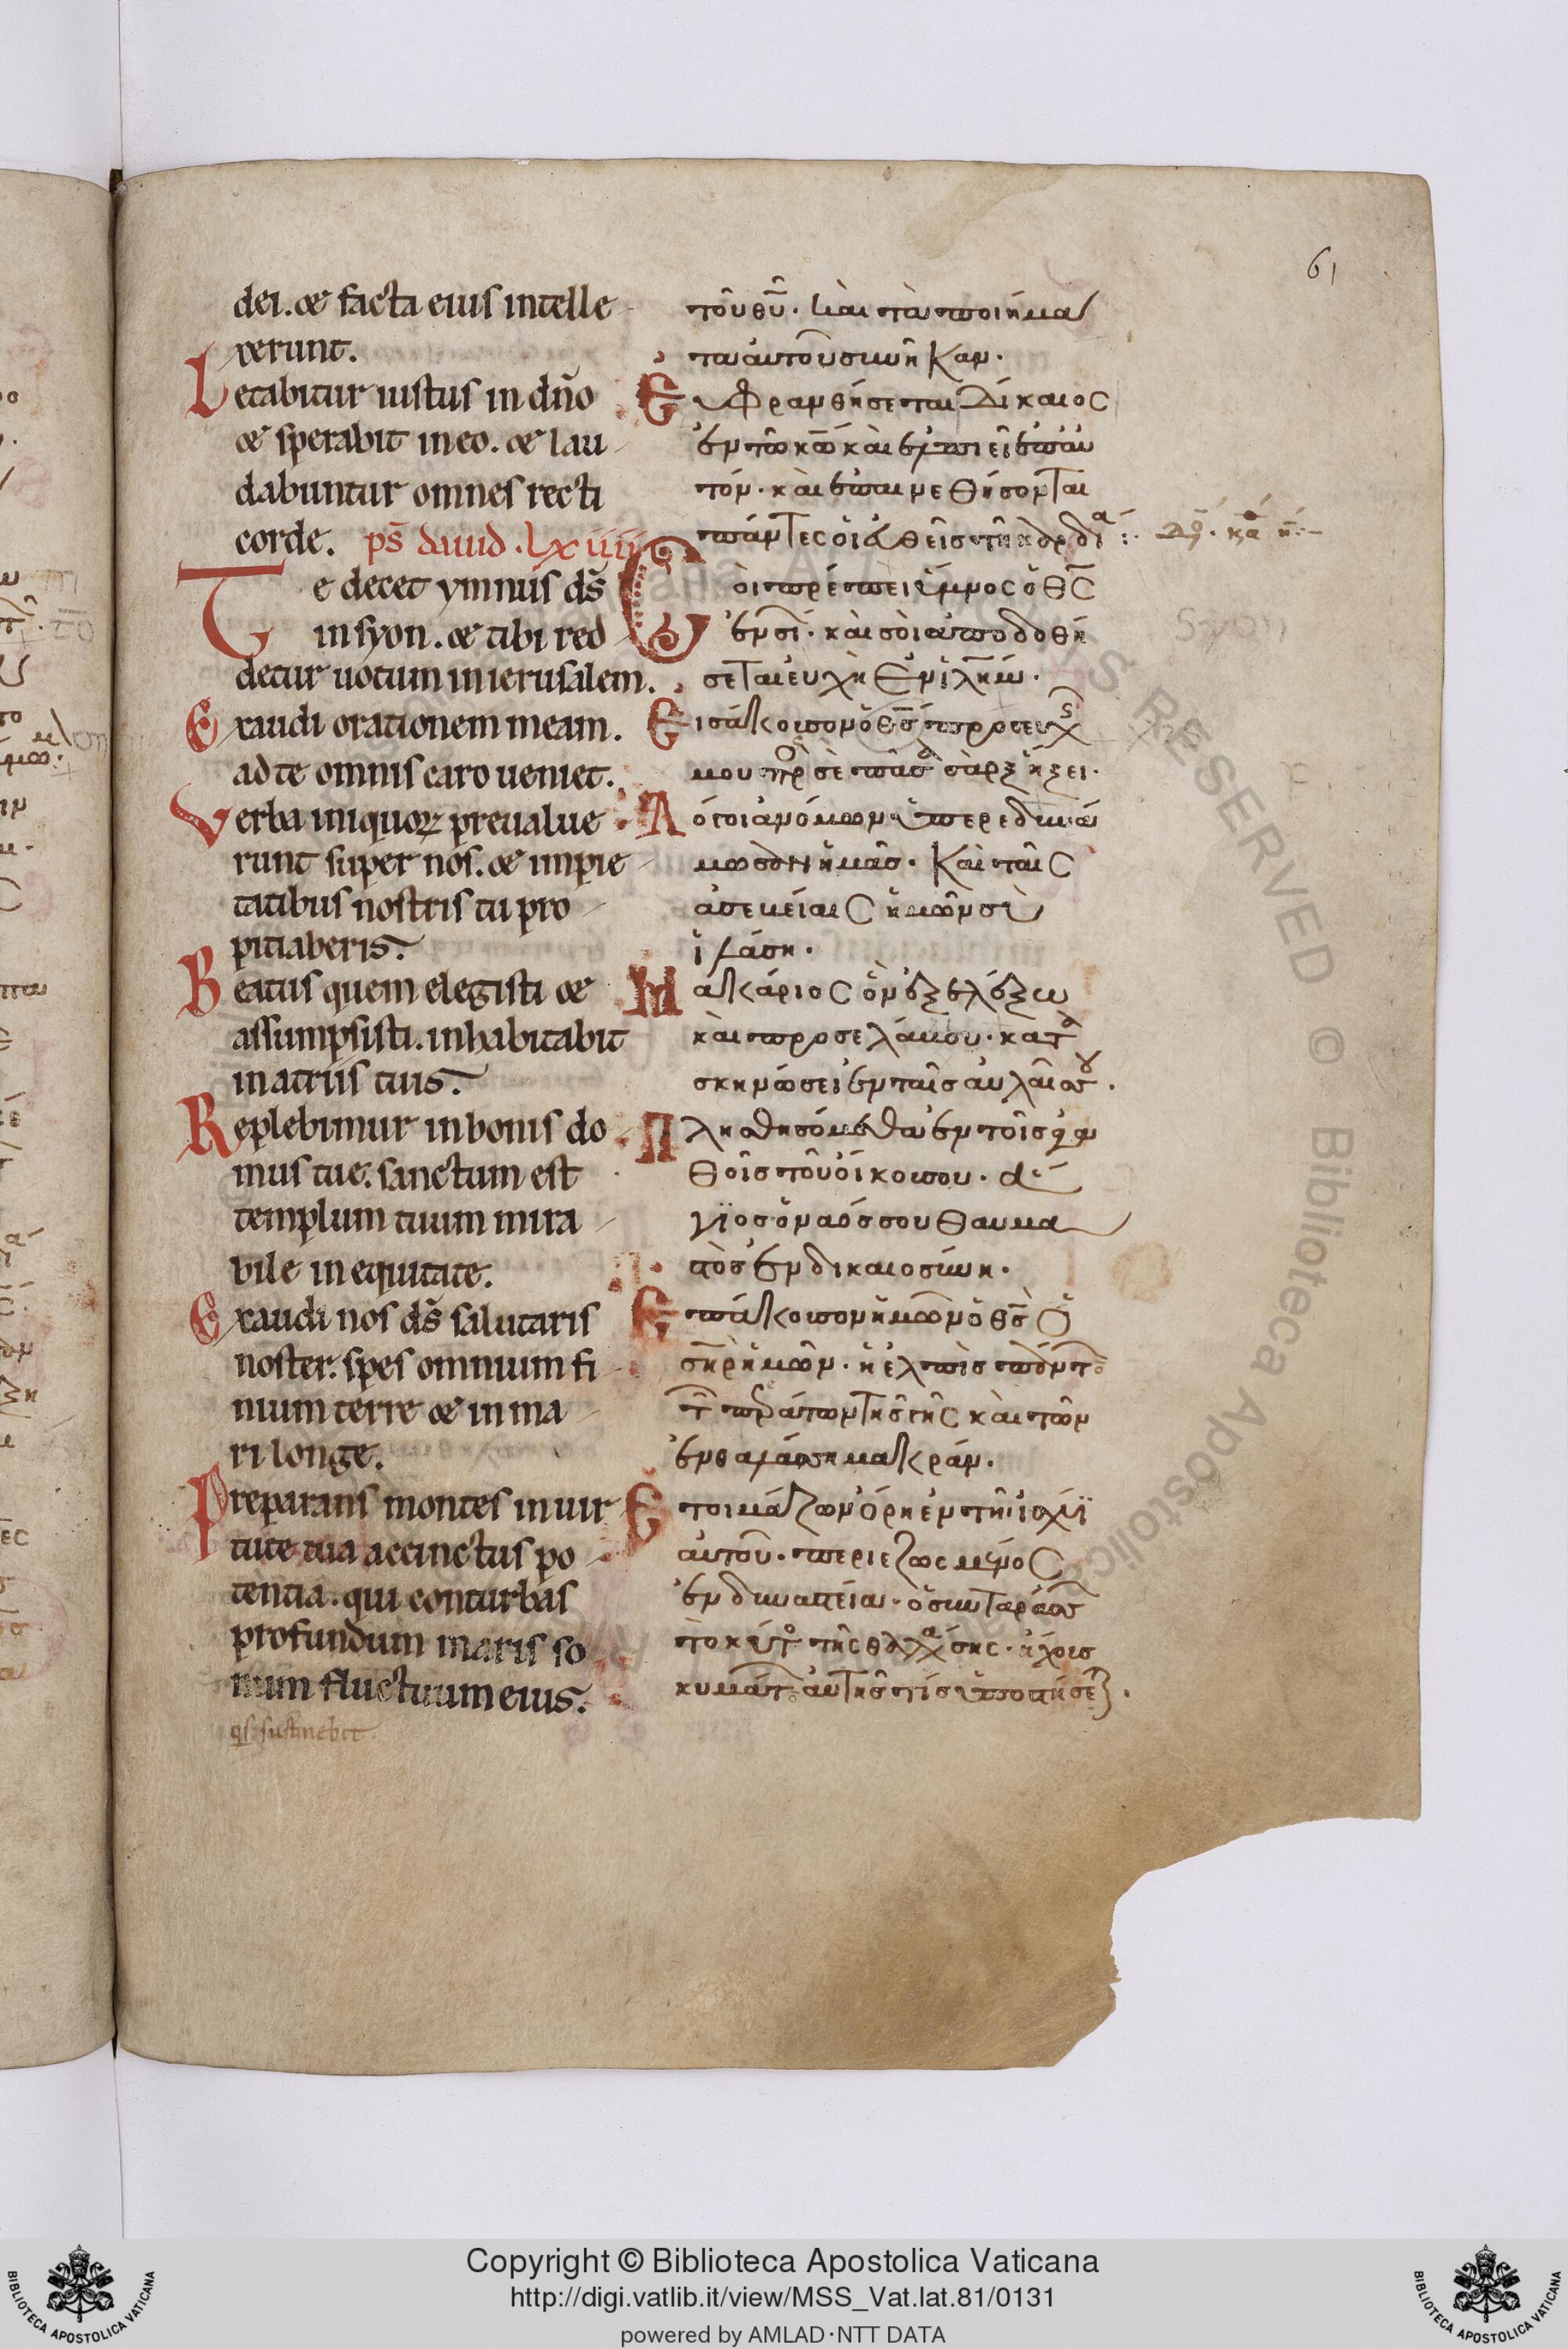 61
dei. & facta eius intelle
xerunt.
Letabitur iustus in dño
& sperabit in eo. & lau
dabuntur omnes recti
corde. ps̄ dauid . lxiiii
Te decet ymnus ds̄
in syon. & tibi red
detur uotum in ierusalem.
Exaudi orationem meam.
ad te omnis caro ueniet.
Verba iniquoꝝ preualue
runt super nos. & impie
tatibus nostris tu pro
pitiaberis.
Beatus quem elegisti &
assumpsisti. inhabitabit
in atriis tuis.
Replebimur in bonis do
mus tue. sanctum est
templum tuum mira
bile in equitate.
Exaudi nos ds̄ salutaris
noster. spes omnium fi
nium terre & in ma
ri longe.
Preparans montes in uir
tute tua accinctus po
tentia. qui conturbas
profundum maris so
num fluctuum eius.
τοῦ θῦ. καὶ τὰ ποιήμα
τα ἀυτοῦ συνῆκαν.
Ἐυφρανθήσεται δίκαιος
ἐν τῶ κω̄ καὶ ἐλπιεῖ ἐπ ἀυ
τόν. καὶ ἐπαινεθήσονται
πάντες ὁι ἐυθεῖς τῆ καρδία
Σὸι πρέπει ὕμνος ὁ θς̄
ἐν σιὼν. καὶ σὸι ἀποδοθή
σεται ἐυχὴ ἐν ἰλη̄μ.
Εισάκουσον ὁ θς̄ προσευχῆς
μου πρὸς σὲ πᾶσα σὰρξ ἥξει.
Λόγοι ἀνόμων ὑπερεδυνά
μωσαν ἡμᾶς. Καὶ ταῖς
ἀσεβείαις ἡμῶν σὺ
ἱλάση.
Μακάριος ὃν ἐξελέξω
καὶ προσελάβου. κατα
σκηνώσει ἐν ταῖς αυλαῖς σου.
Πλησθησόμεθα ἐν τοῖς ἀγα
θοῖς τοῦ ὀίκου σου. ἅ
γιος ὁ ναός σου θαυμα
τὸς ἐν δικαιοσύνη.
Επάκουσον ἡμῶν ὁ θς̄ ὁ
σηρ̄ ἡμῶν. ἡ ἐλπὶς πάντων
τῶν περάτων τῆς γῆς καὶ τῶν
ἐν θαλάσση μακράν.
Ἑτοιμάζων ὄρη ἐν τῆ ἰσχύϊ
ἀυτοῦ. περιεζωσμένος
ἐν δυναστεία. ὁ συνταράσσων
τὸ κύτος τῆς θαλάσσης. ἤχους
κυμάτων αὐτῆς τίς ὑποστήσεται.
qs sustinebit
Copyright © Biblioteca Apostolica Vaticana
http://digi.vatlib.it/view/MSS_Vat.lat.81/0131
powered by AMLAD·NTT DATA